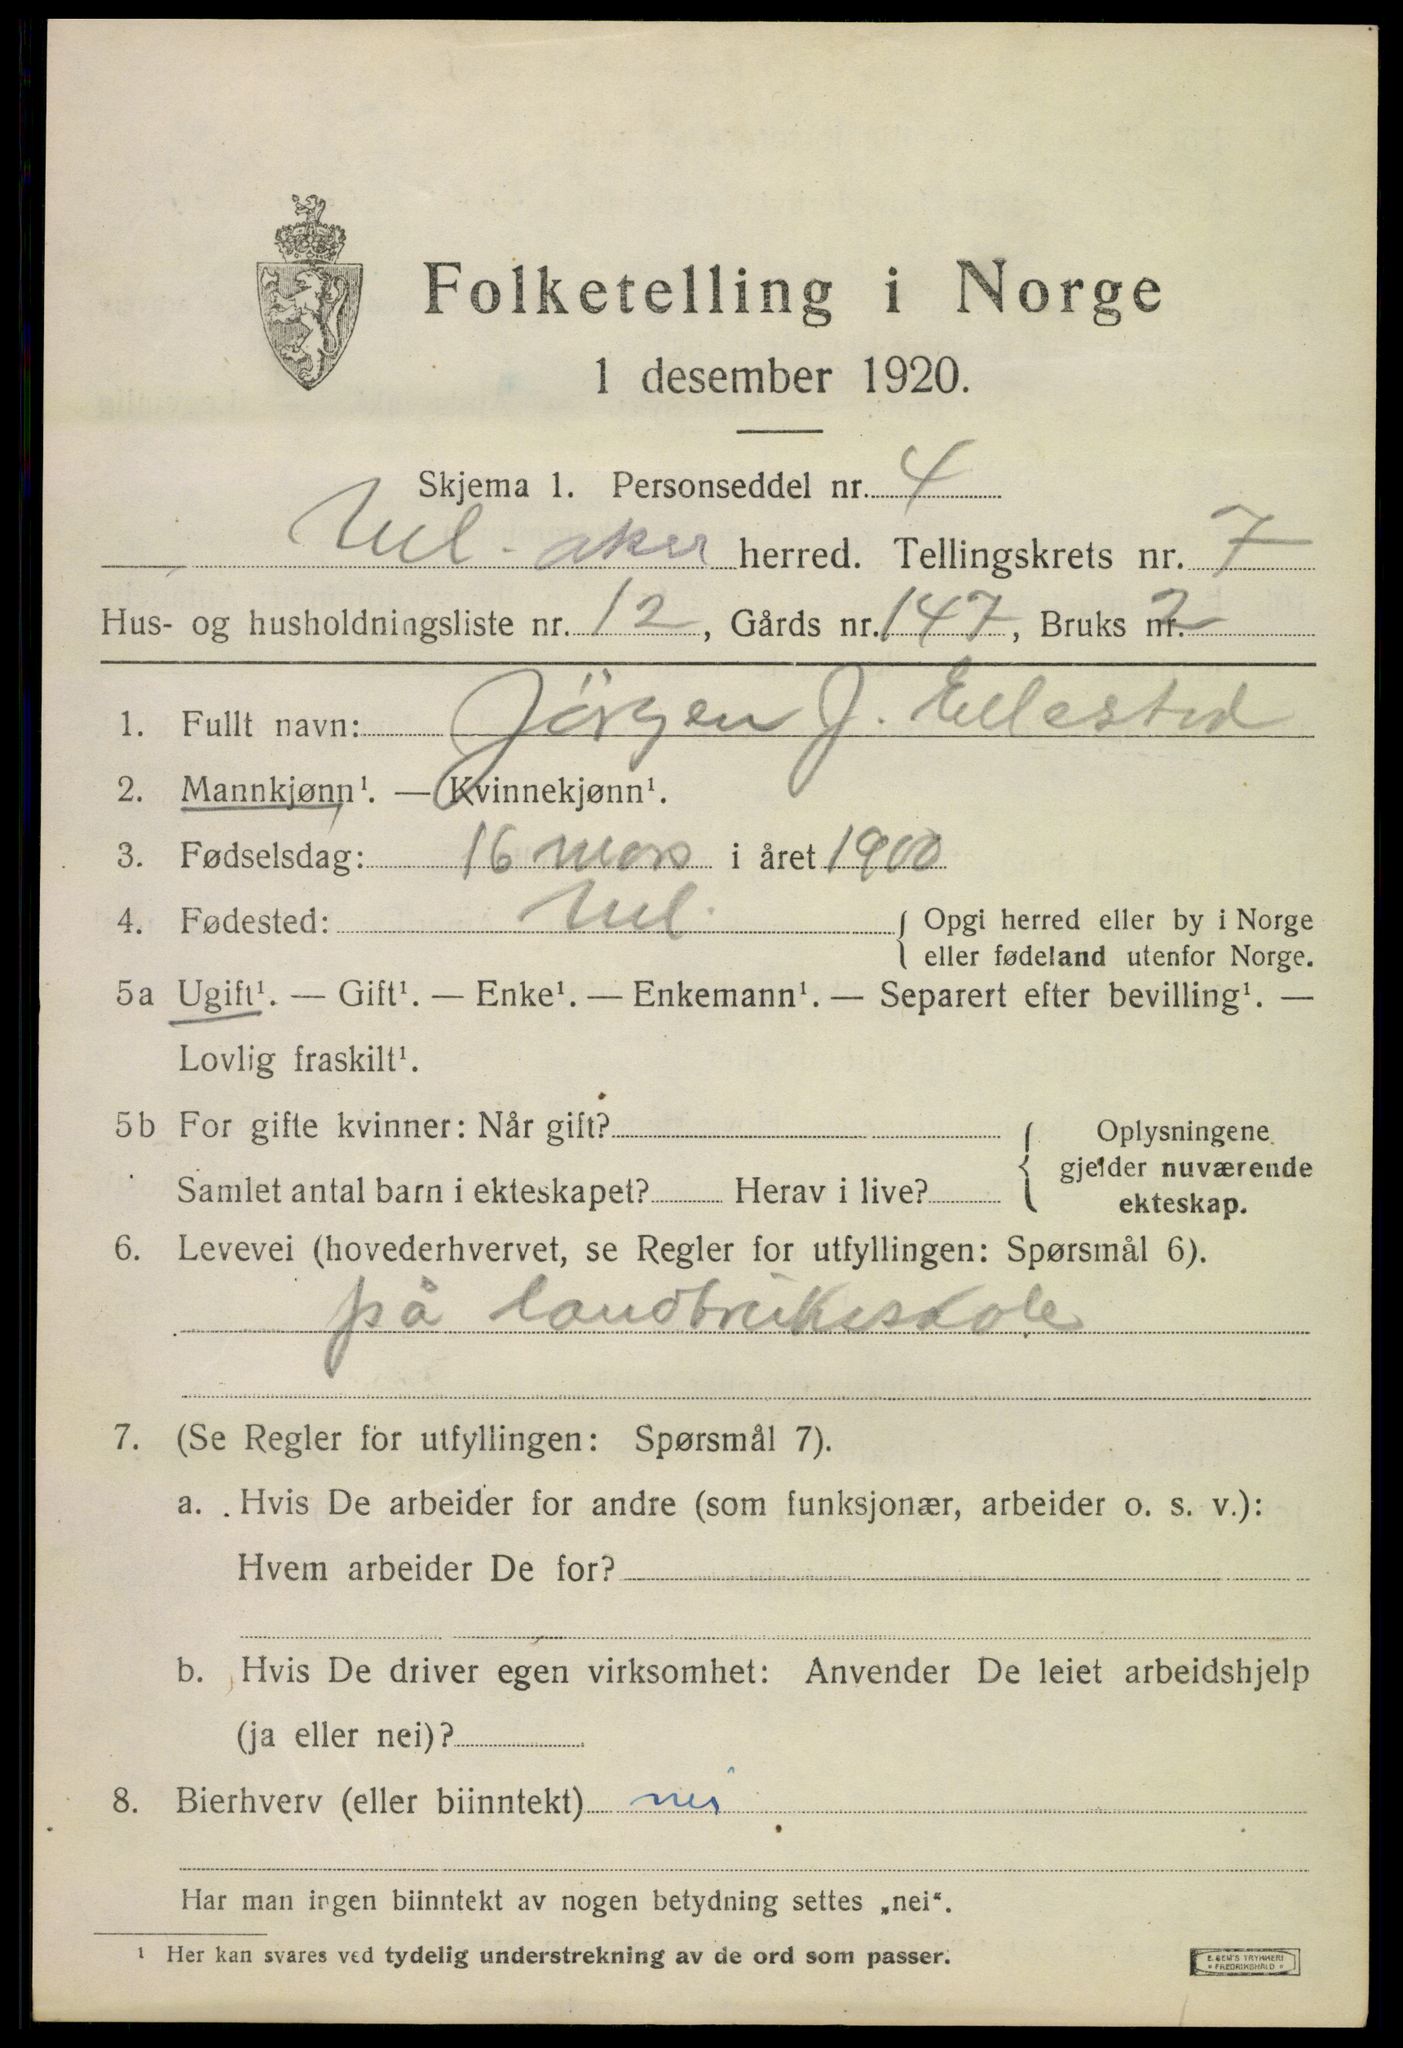 Folketelling i Norge
1 desember 1920.
Skjema 1. Personseddel nr. 4
Ul. aker herred. Tellingskrets nr. 7
Hus- og husholdningsliste nr. 12, Gårds nr. 147, Bruks nr. 2
1. Fullt navn: Jörgen J. Ellestad
2. Mannkjønn¹. — Kvinnekjønn¹.
3. Fødselsdag: 16 mars i året 1900
4. Fødested: Ul. { Opgi herred eller by i Norge
eller fødeland utenfor Norge.
5a Ugift¹. — Gift¹. — Enke¹. — Enkemann¹. — Separert efter bevilling¹. —
Lovlig fraskilt¹.
5b For gifte kvinner: Når gift? { Oplysningene
gjelder nuværende
Samlet antal barn i ekteskapet? Herav i live? ekteskap.
6. Levevei (hovederhvervet, se Regler for utfyllingen: Spørsmål 6).
på landbrukeskole
7. (Se Regler for utfyllingen: Spørsmål 7).
a. Hvis De arbeider for andre (som funksjonær, arbeider o. s. v.):
Hvem arbeider De for?
b. Hvis De driver egen virksomhet: Anvender De leiet arbeidshjelp
(ja eller nei)?
8. Bierhverv (eller biinntekt) nei
Har man ingen biinntekt av nogen betydning settes „nei“.
¹ Her kan svares ved tydelig understrekning av de ord som passer.
E. SEM'S TRYKKERI
FREDRIKSHALD